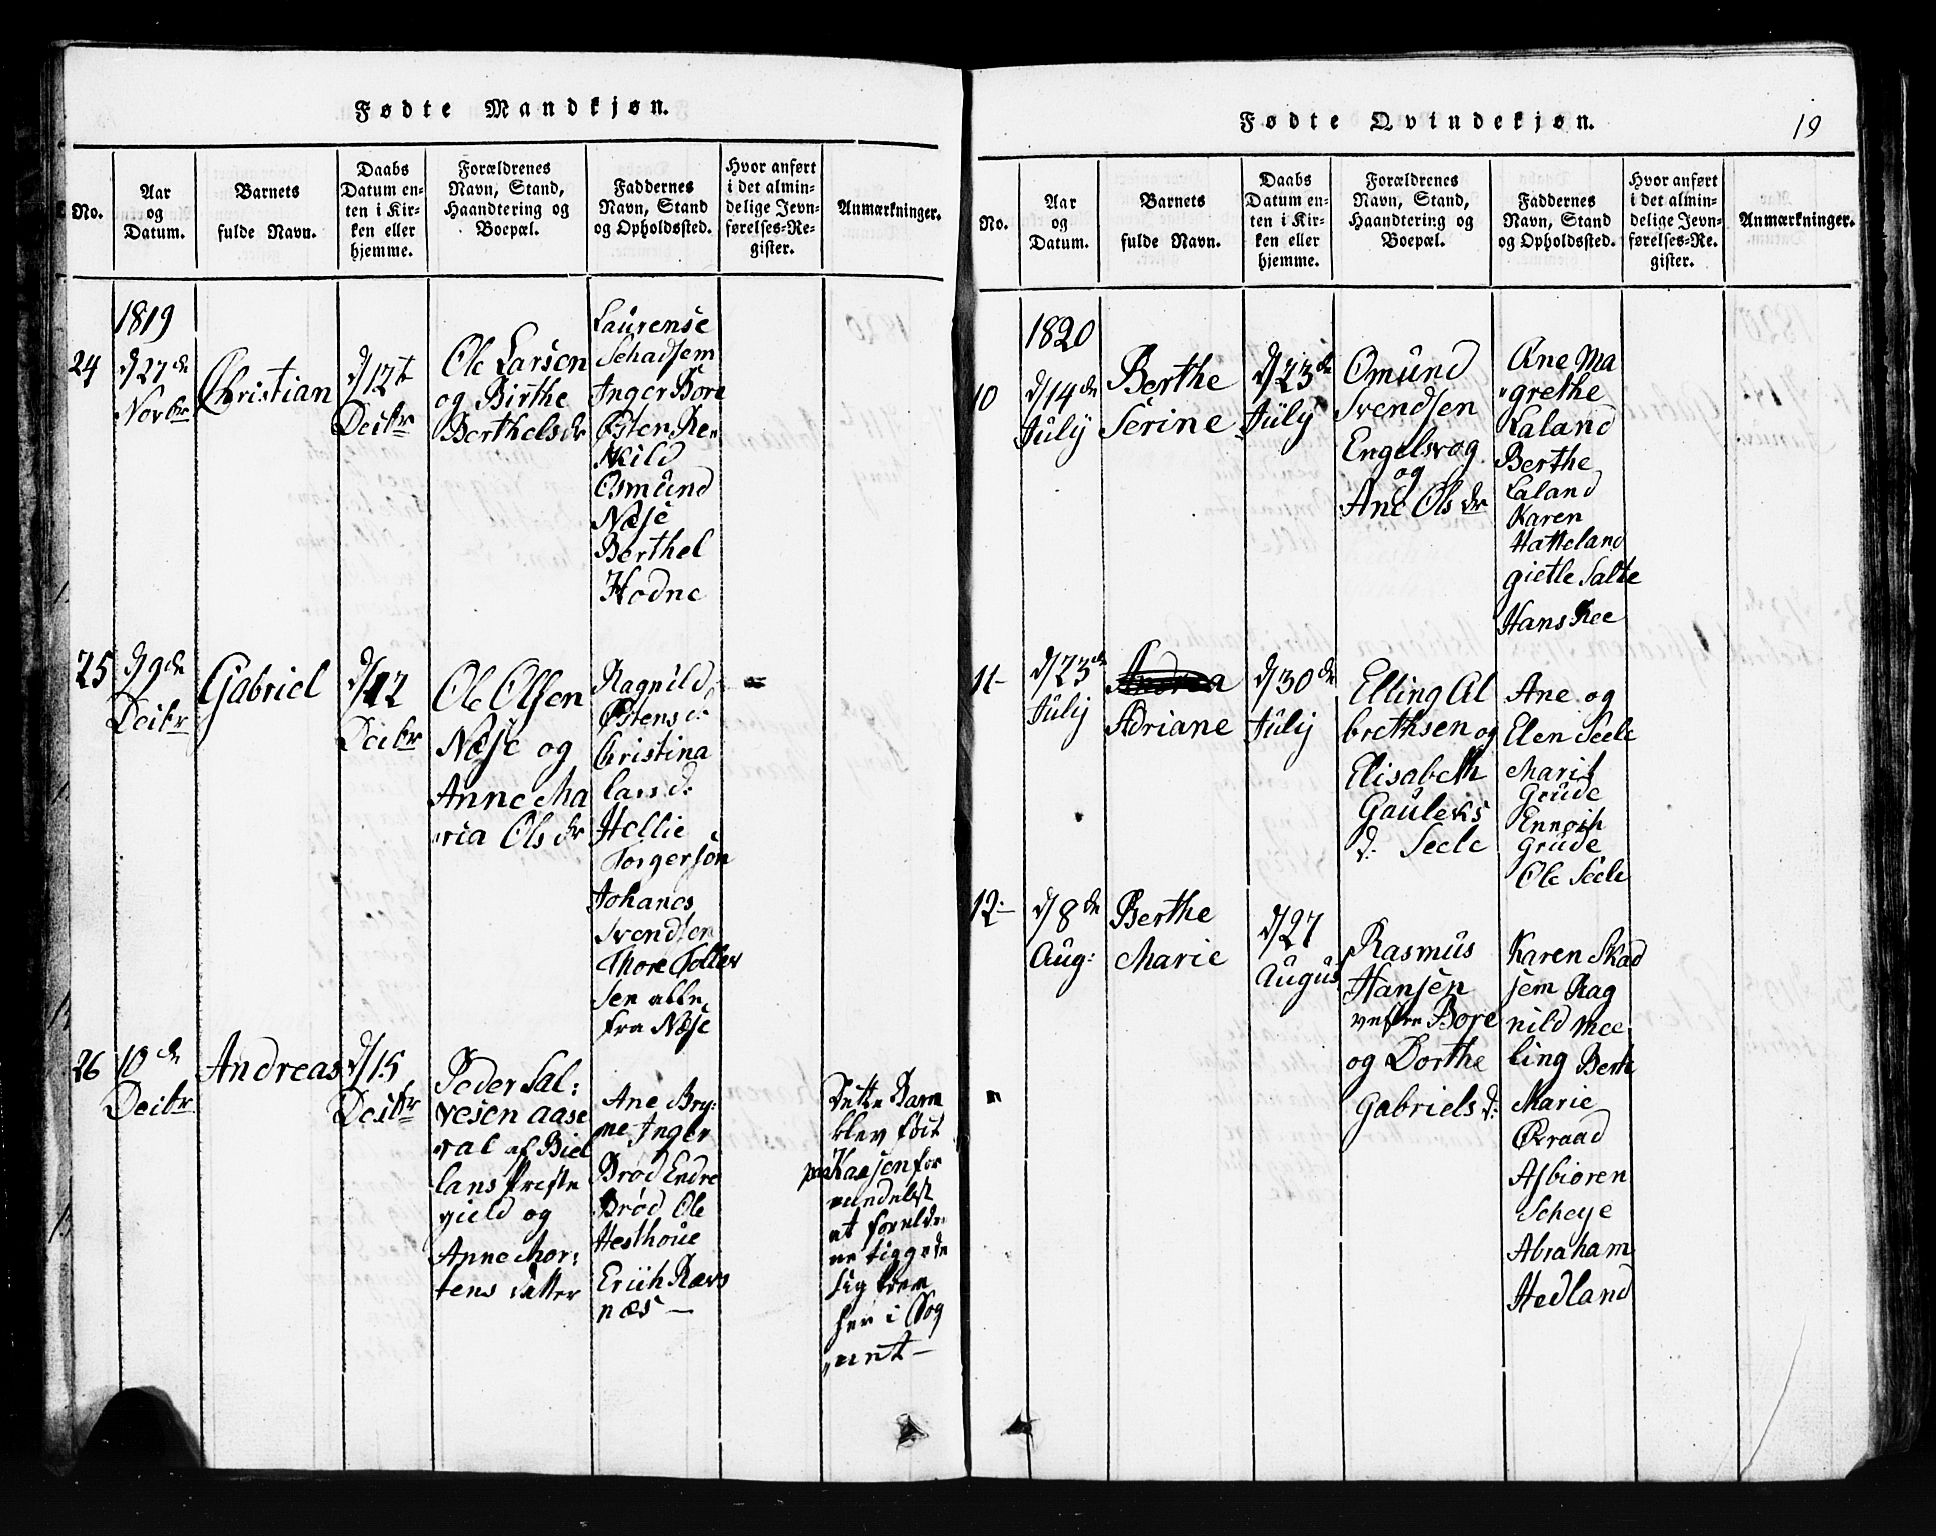 Fødte Mandkjøn.
No.
Aar
og
Datum.
Barnets
fulde Navn.
Daabs
Datum en-
ten i Kir-
ken eller
hjemme.
Forældrenes
Navn, Stand,
Haandtering og
Boepæl.
Faddernes
Navn, Stand
og Opholdssted.
Hvor anført
i det almin-
delige Jevn-
førelses-Re-
gister.
Anmærkninger.
1819
24
d/27de
Novbr
Christian
d/12t
Decbr
Ole Larsen
og Birthe
Berthelsdr
Laurense
Schadsem
Inger Bore
Østen Re-
Skild
Osmund
Næse
Berthel
Hodne
25
d/9de
Decbr
Gabriel
d/12
Decbr
Ole Olsen
Næse og
Anne Ma
ria Olsdr
Ragnild
Østensd:
Christina
larsd:
Hellie
Torgersøn
Johanes
Svendsen
Thore Tolles
sen alle
fra Næse
26
10de
Decbr
Andreas
d/15
Decbr
Peder Sal:
vesen aase
ral af Biel
lans Præste
gield og
Anne Mor:
tens datter
Ane Bry:
ne Inger
Brød Endre
Brød Ole
Hesthoue
Erich Ravs
næs —
Dette Barn
blev fød
paa Raasen for
medelst
at forældre
ne tiggede
sig frem
her i Sog
net —
Fødte Qvindekjøn.
19
No.
Aar
og
Datum.
Barnets
fulde Navn.
Daabs
Datum en-
ten i Kir-
ken eller
hjemme.
Forældrenes
Navn, Stand,
Haandtering og
Boepæl.
Faddernes
Navn, Stand
og Opholdssted.
Hvor anført
i det almin-
delige Jevn-
førelses-Re-
gister.
Anmærkninger.
1820
10
d/14de
July
Berthe
Serine
d/23de
July
Omund
Svendsen
Engelsvog
og
Ane Olsdr
Ane Ma
grethe
Laland
Berthe
Laland
Karen
Hatteland
gietle Salte
Hans Ree
11-
d/23de
July
Andrea
Adriane
d/30de
July
Elling Al
brethsen og
Elisabeth
Gaulechs
d: Seele
Ane og
Elen Seele
Marit
Grude
Ennoch
Grude
Ole Seele
12:-
d/8de
Aug:
Berthe
Marie
d/27
August
Rasmus
Hansen
vestre Bore
og Dorthe
Gabrielsd:
Karen Skad
sem Rag
nild Mee
ling Berte
Marie
Øxraad
Asbiøren
Scheye
Abraham
Hedland